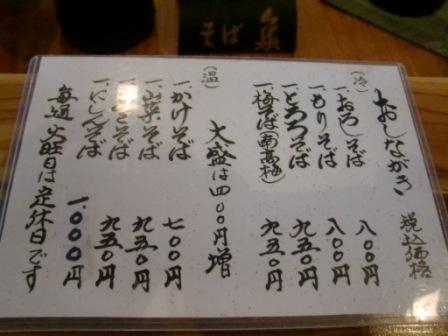 そば
おしながき 税込価格
(冷)
一、おろしそば 八〇〇円
一、もりそば 八〇〇円
一、とろろそば 九五〇円
一、梅そば(南高梅) 九五〇円
大盛は四〇〇円増
(温)
一、かけそば 七〇〇円
一、山菜そば 九五〇円
そば 九五〇円
一、にしんそば 一、〇〇〇円
毎週火曜日は定休日です